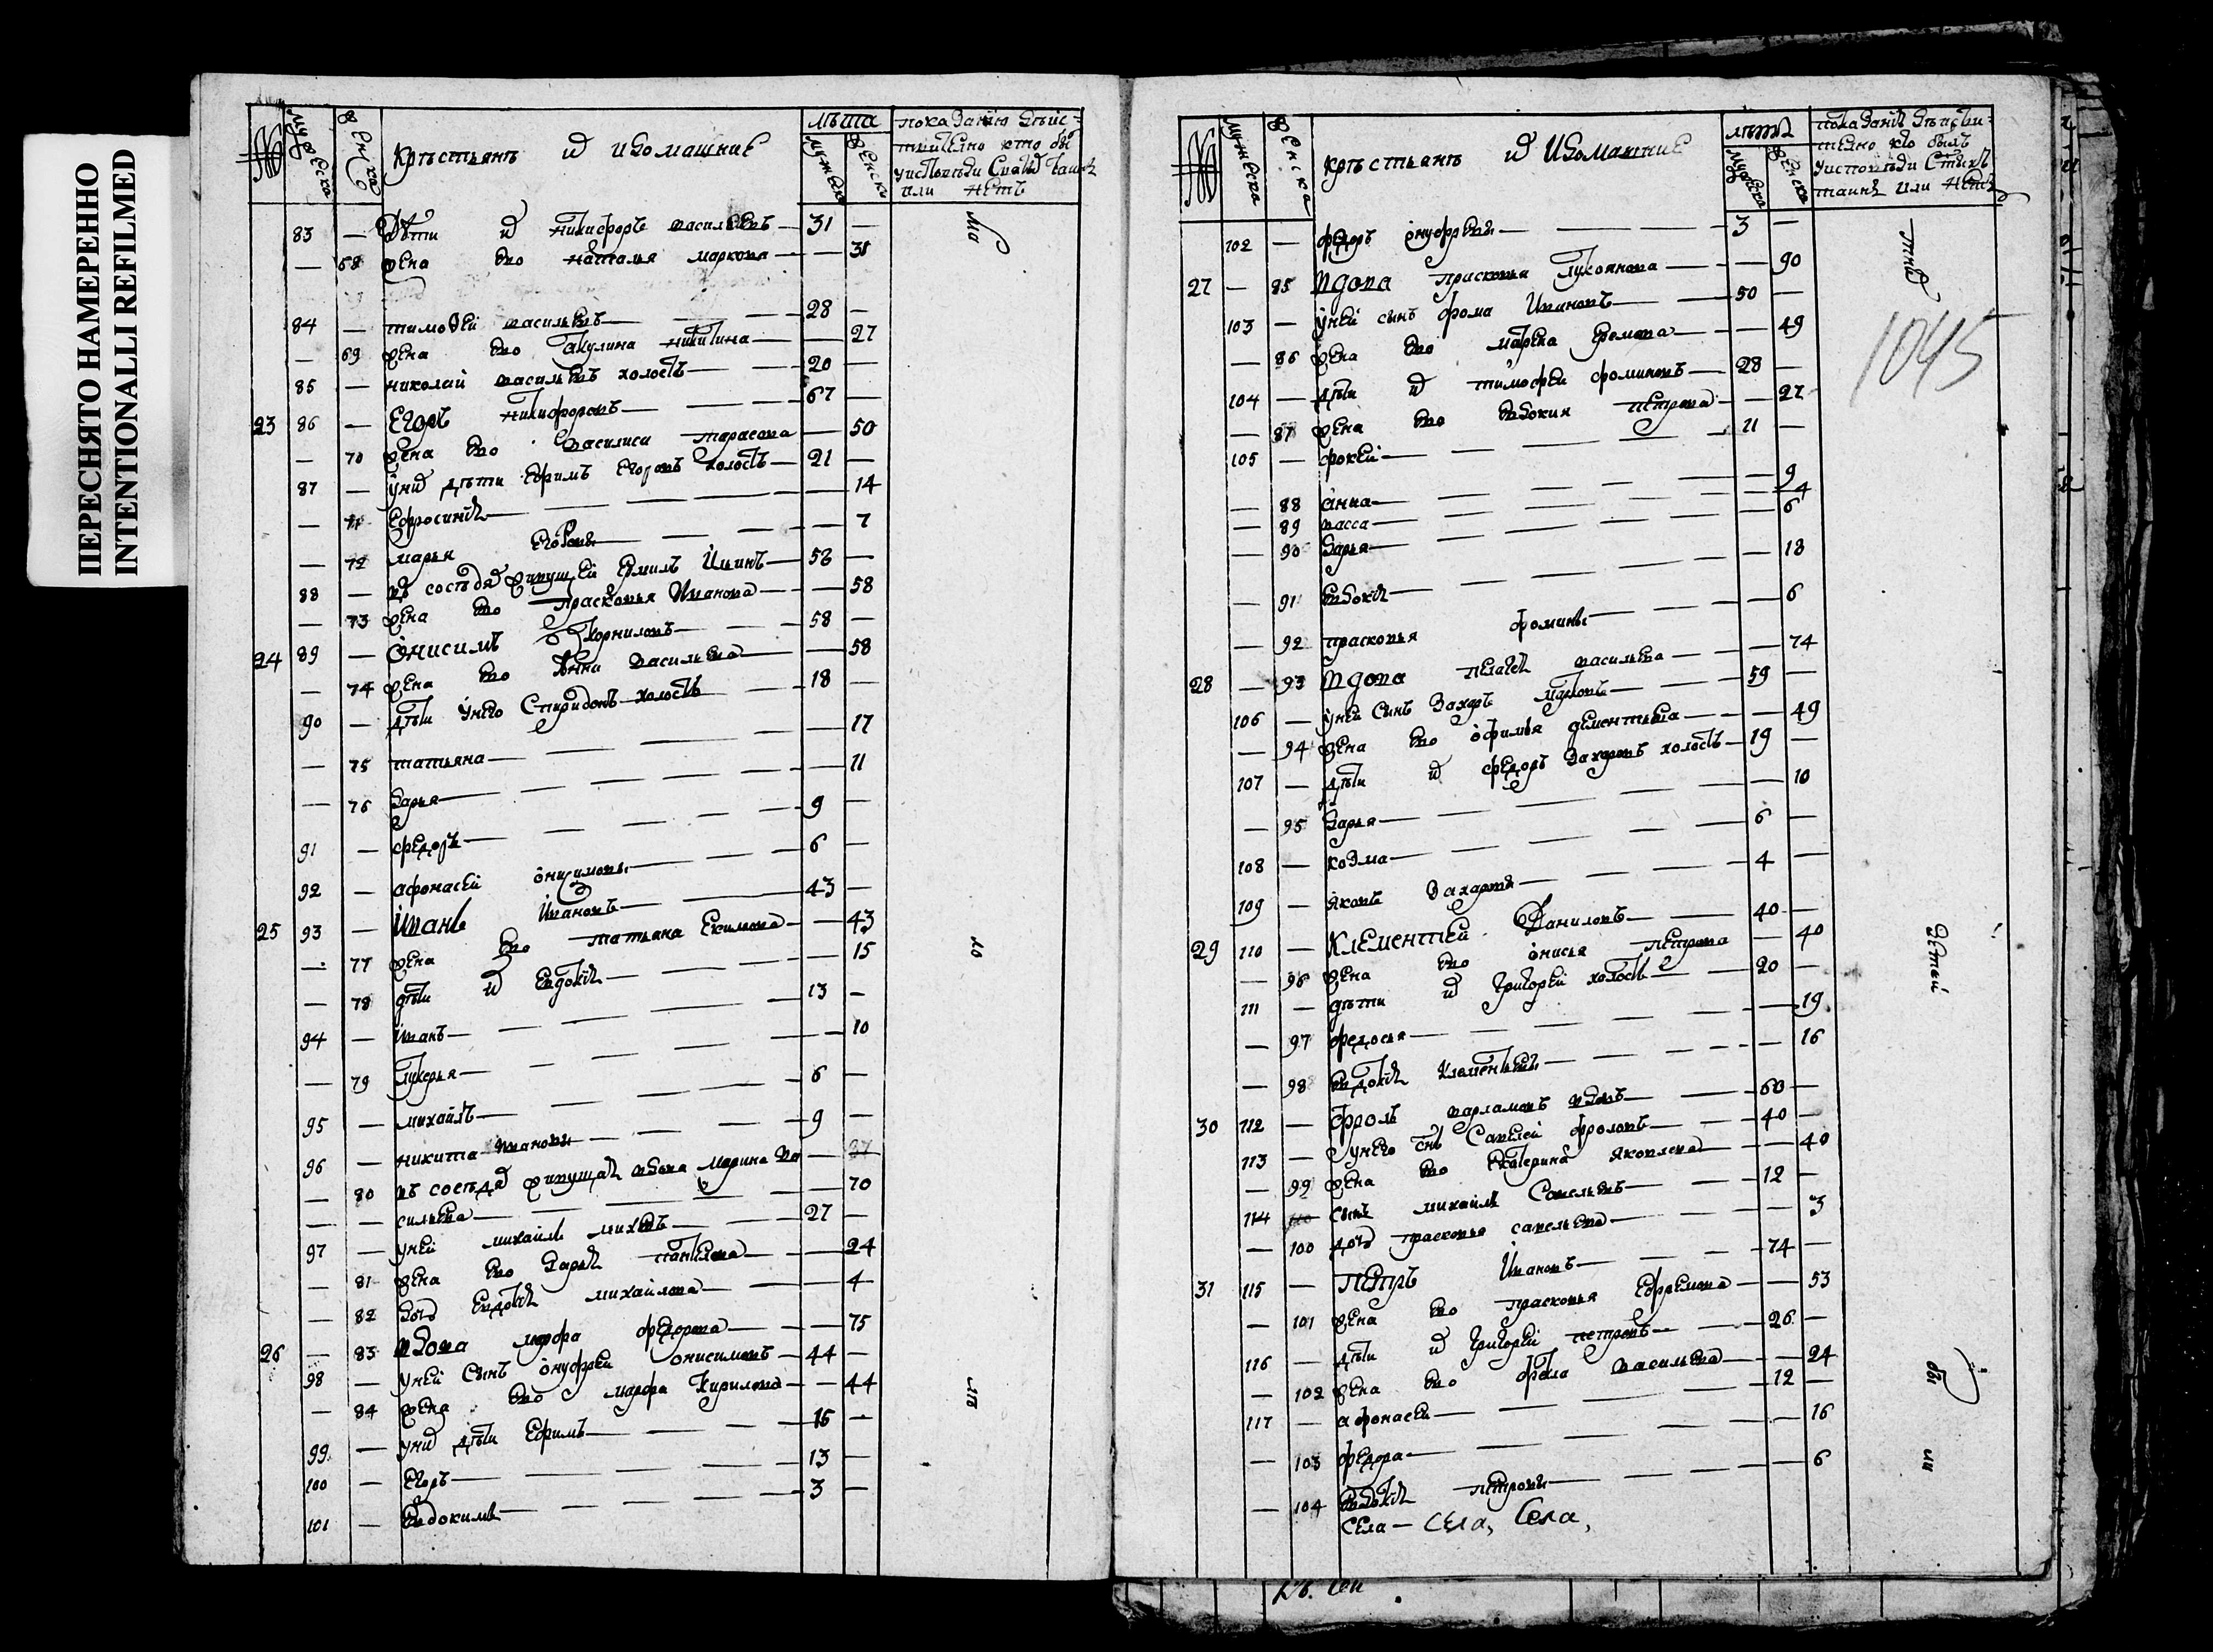 ПЕРЕСНЯТО НАМЕРЕННО
INTENTIONALLI REFILMED
№ мужеска женска крѣстьянъ и ихъ домашние лѣта мужеска женска показание дѣйствително кто бы у исповѣди
или нетъ
83 — дѣти ихъ никифоръ васильевъ — 31 —
— 68 жена ево наталья маркова — — 31
84 — тимоѳей васильевъ — 28 —
— 69 жена ево акулина никитина — — 27
85 — николай васильевъ холостъ — 20 —
23 86 — Егоръ никифоровъ — 67 —
— 70 жена ево василиса тарасова — 50
87 — у нихъ дѣти ефримъ егоровъ холостъ — 21 —
— 71 ефросинья — — 14
— 72 марья егоровы — — 7
88 — въ соседяхъ живущей ермилъ — 56 —
— 73 жена ево прасковья иванова — — 58
24 89 — онисимъ корниловъ — 58 —
— 74 жена ево анна васильева — — 58
90 — дѣти у него спиридонъ холостъ — 18 —
— 75 татьяна — — 17
— 76 дарья — — 11
91 — федоръ — 9 —
92 — афонасей онисимовы — 6 —
25 93 — иванъ ивановъ — 43 —
— 77 жена ево татьяна — — 43
— 78 дѣти ихъ евдокия — — 15
94 — иванъ — 13 —
— 79 лукерья — — 10
95 — михайлъ — 6 —
96 — никита ивановы — 9 —
— 80 въ соседяхъ живущая вдова марина ва — 37
— — сильева — — 70
97 — у ней михайлъ — 27 —
— 81 жена ево дарья — — 24
— 82 дочь евдокия михайлова — — 4
26 — 83 вдова марфа федорова — — 75
98 — у ней сынъ онуфрей онисимовъ — 44 —
— 84 жена ево марфа кирилова — — 44
99 — у нихъ дѣти ефримъ — 16 —
100 — егоръ — 13 —
101 — евдокимъ — 3 —
№ мужеска женска крѣстьянъ и ихъ домашние лѣта мужеска женска показание дѣйствително кто былъ у исповѣди
таинъ или нетъ
1045
102 — федоръ онуфревы — 3 —
27 — 85 вдова прасковья лукоянова — — 90
103 — у ней сынъ фома ивановъ — 50 —
— 86 жена ево марѳа еремова — — 49
104 — дѣти ихъ тимофей фоминовъ — 28 —
— 87 жена ево евдокия петрова — — 27
105 — фокей — 11 —
— 88 анна — — 9
— 89 васса — — 4
— 90 дарья — — 6
— 91 евдокия — — 18
— 92 прасковья фомины — — 6
28 — 93 вдова пелагея васильева — — 74
106 — у ней сынъ захаръ марковъ — 59 —
— 94 жена ево офимья дементьева — — 49
107 — дѣти ихъ федоръ захаровъ холостъ — 19 —
— 95 дарья — — 10
108 — козма — 6 —
109 — яковъ захаровы — 4 —
29 110 — клементей даниловъ — 40 —
— 96 жена ево онисья петрова — 40
111 — дѣти ихъ григорей холостъ — 20 —
— 97 федосья — — 19
— 98 евдокия клементьевы — — 16
30 112 — фролъ варламовъ вдовъ — 60 —
113 — у него снъ савелей фроловъ — 40 —
— 99 жена ево екатерина яковлева — — 40
114 — сынъ михайлъ савельевъ — 12 —
— 100 дочь прасковья савельева — — 3
31 115 — петръ ивановъ — 74 —
— 101 жена ево прасковья ефремова — — 53
116 — дѣти ихъ григорей петровъ — 26 —
— 102 жена ево фекла васильева — — 24
117 — афонасей — 12 —
— 103 федора — — 16
— 104 евдокия петровы — — 6
села — села, села,